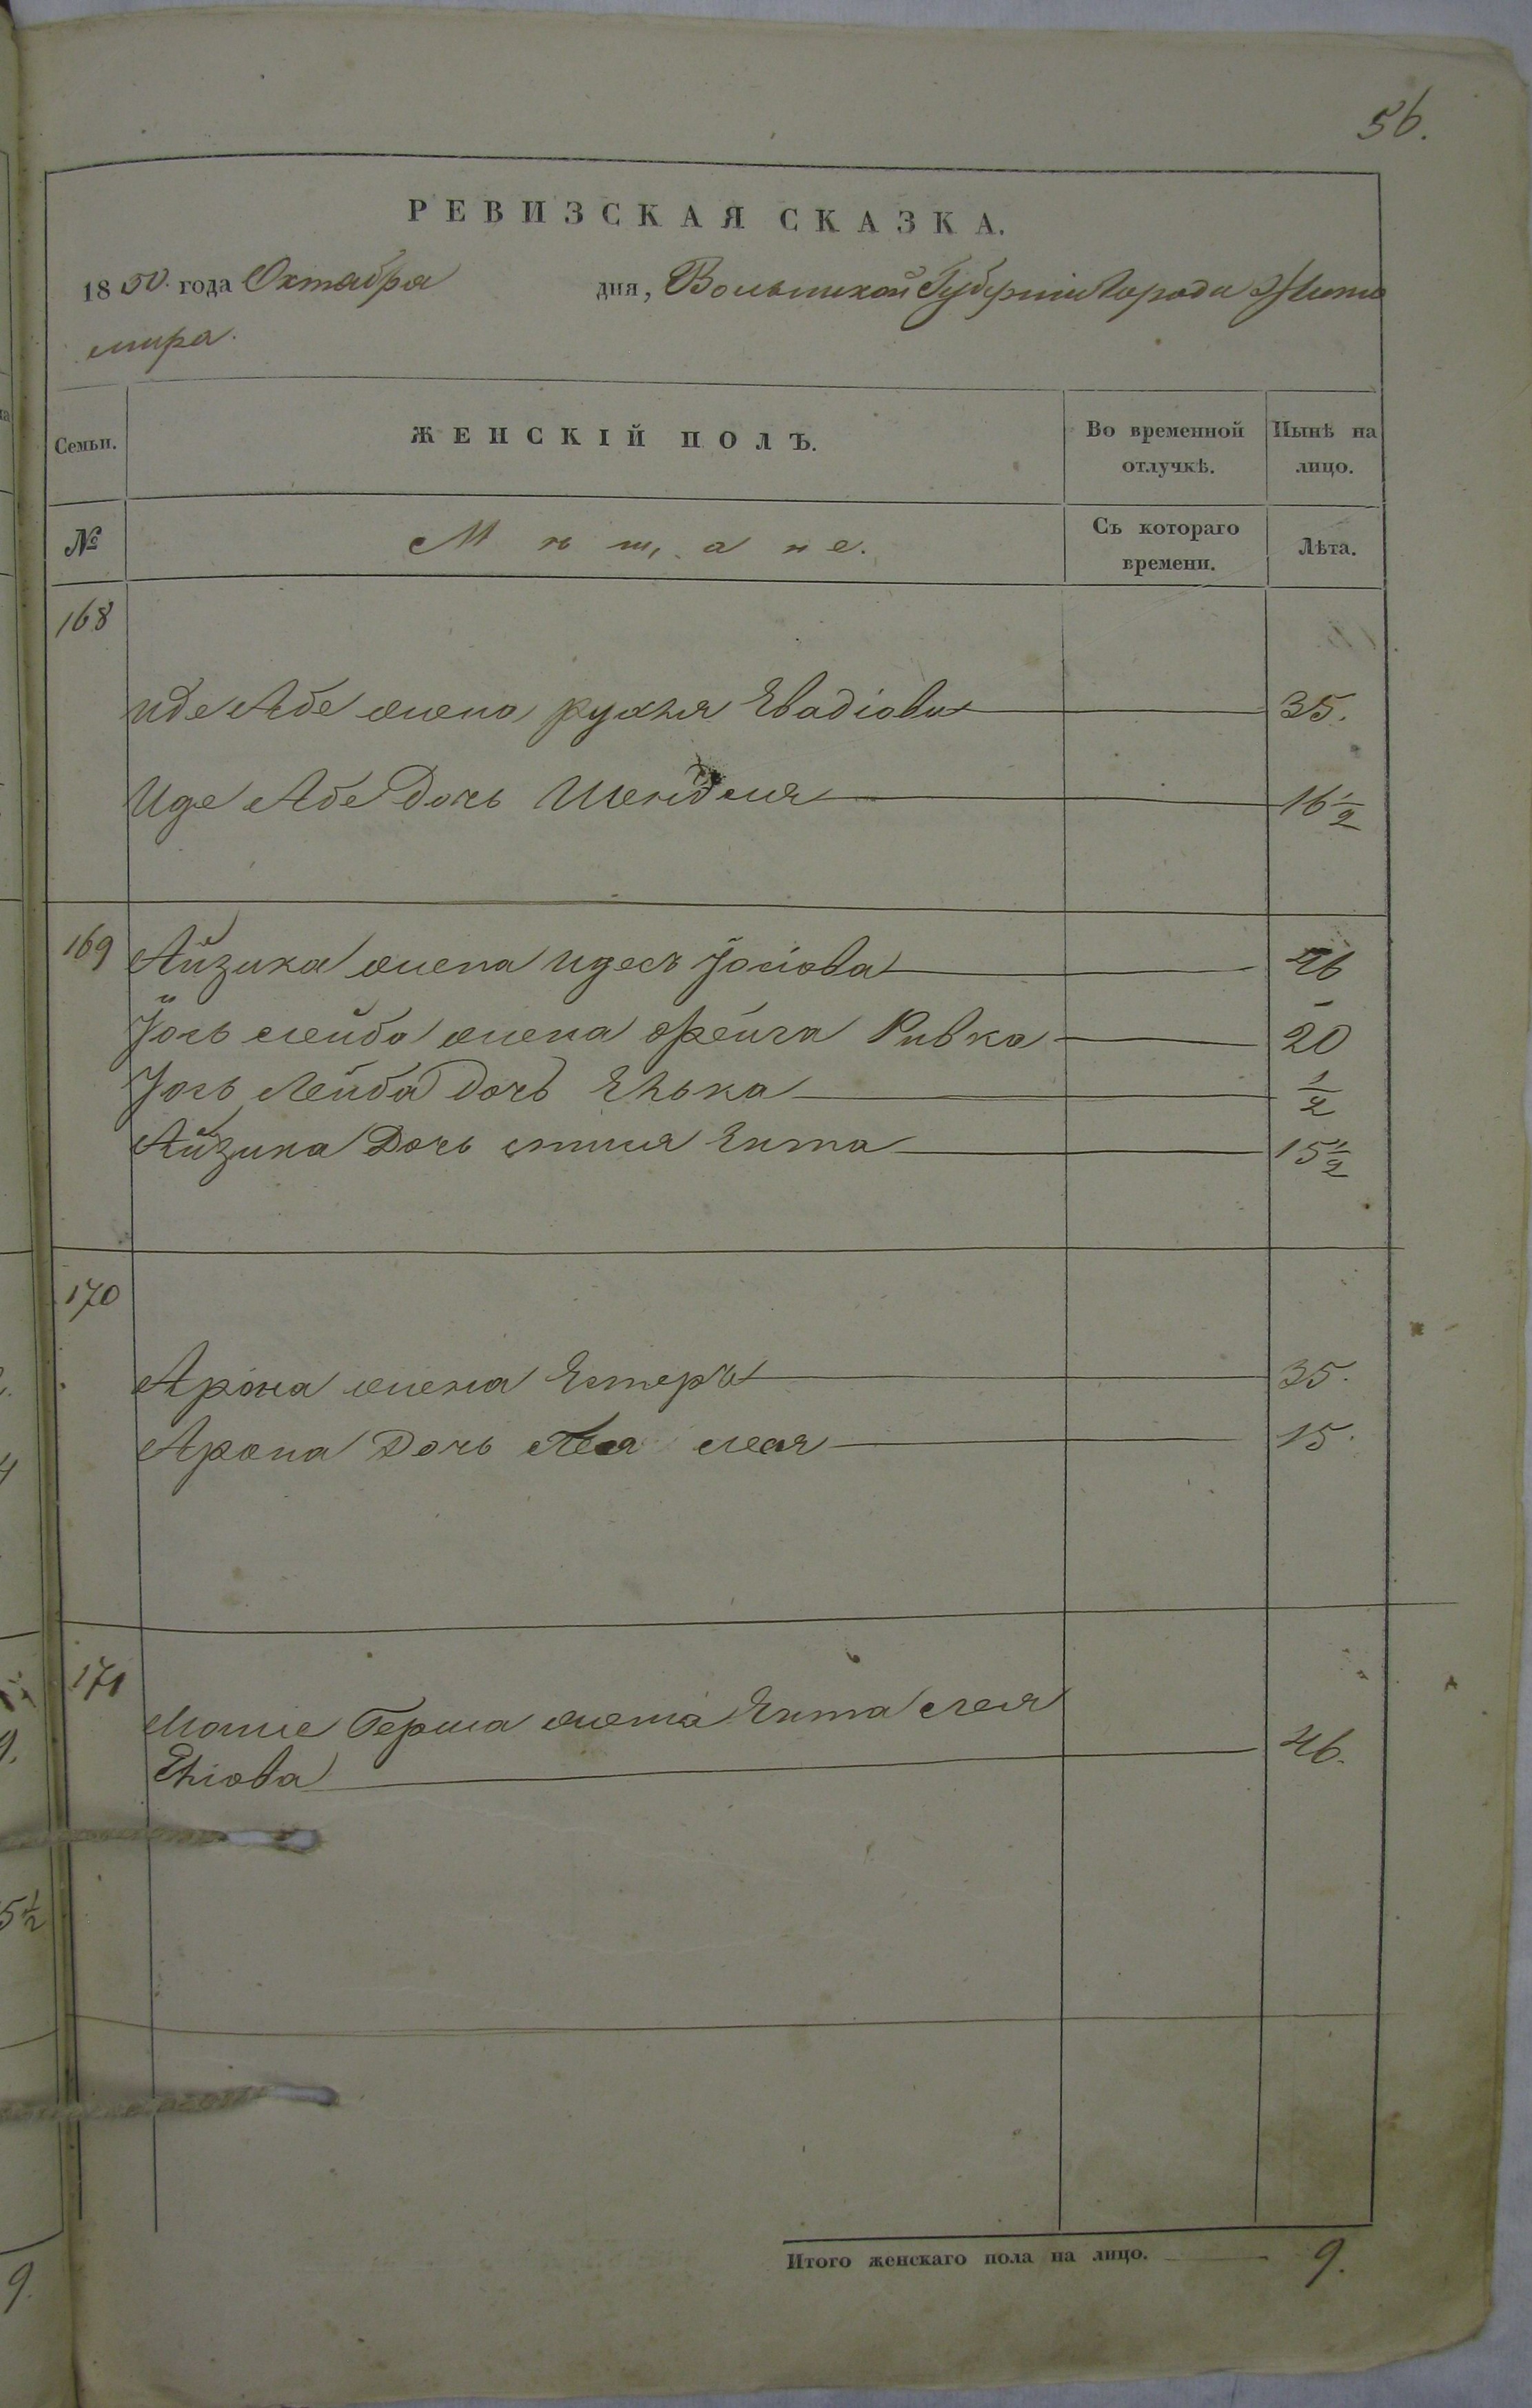 56.
РЕВИЗСКАЯ СКАЗКА.
1850. года Октабра дня, Волынской Губернии Города Жито
мира.
Семьи. ЖЕНСКІЙ ПОЛЪ. Во временной отлучкѣ. Нынѣ на лицо.
№ Мѣщане. Съ котораго времени. Лѣта.
168
Иде Абе жена рухля 35.
Иде Абе Дочь Шендля 16 1/2
169 Айзика жена Идесъ Јосіова 46
Јось лейба жена фейга Ривка 20
Јось Лейба дочь 1/2
Айзика Дочь Ента 15 1/2
170
Арона жена Естеръ 35.
Арона Дочь Пея лея 15.
171
Мошке Герша жена Ента лея
46.
Итого женскаго пола на лицо. 9.
5 1/2
9.